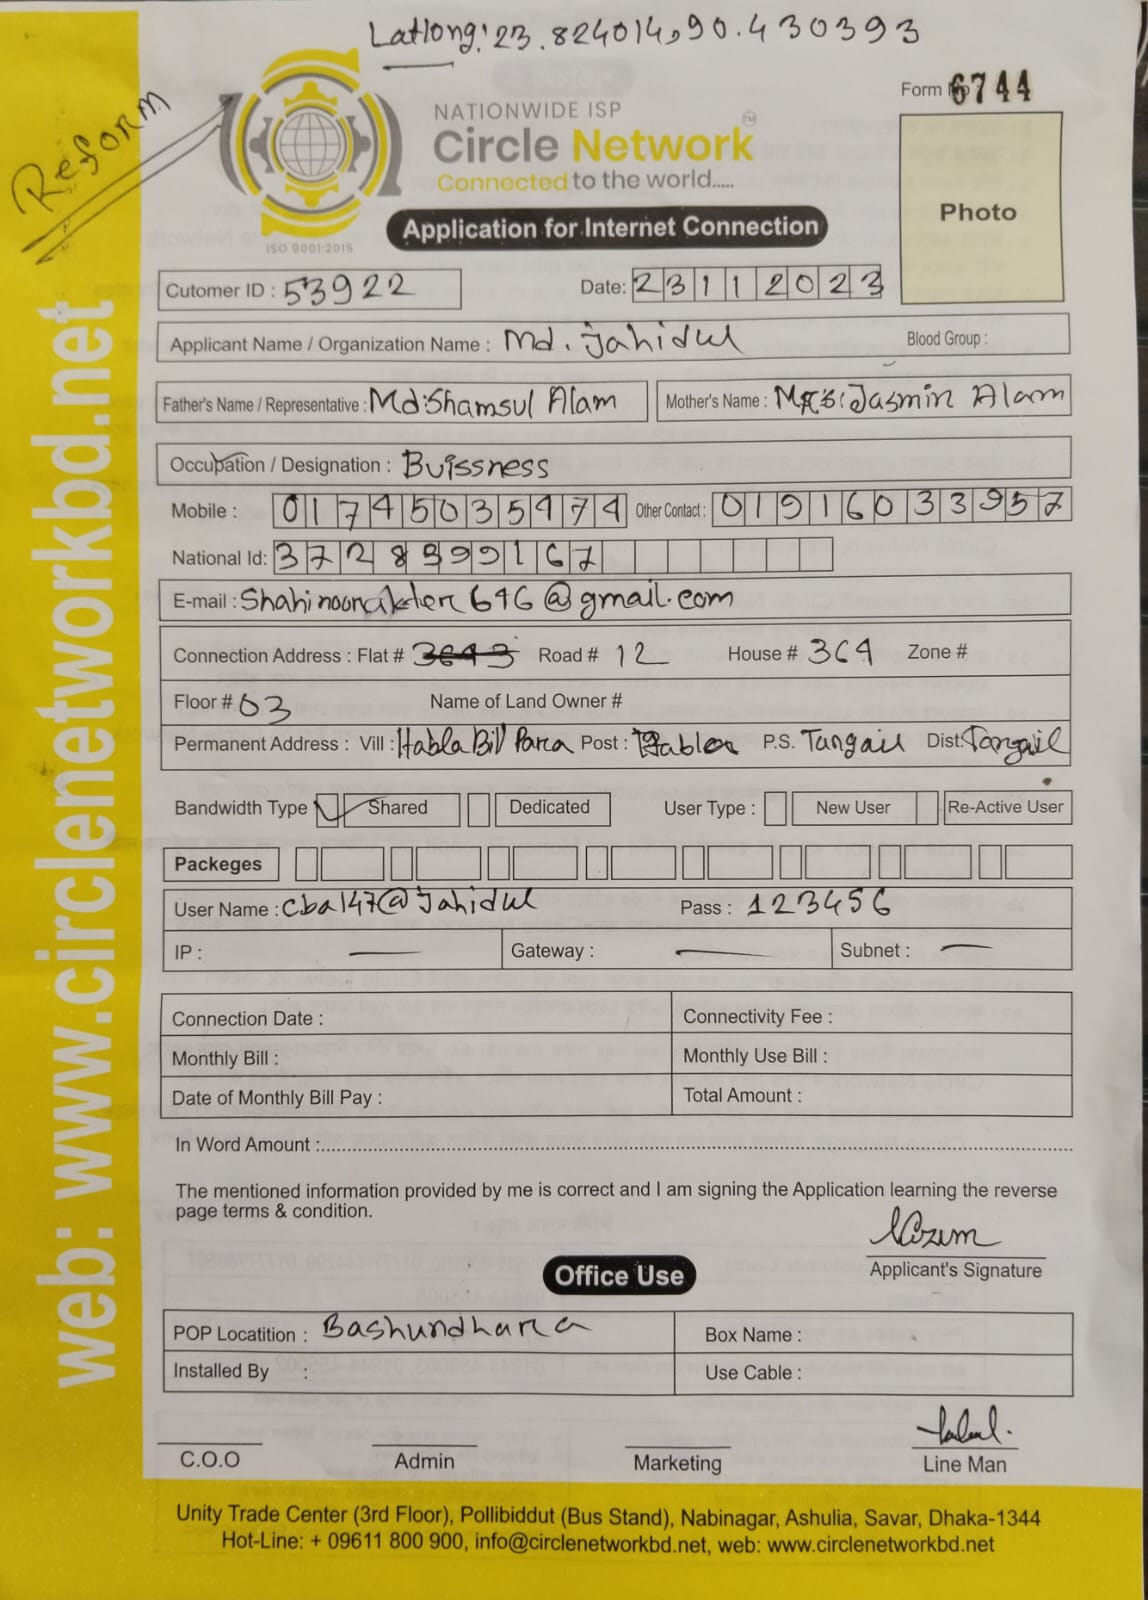 Latlong: 23.824014,90.430393
Reform
Form No 6744
NATIONWIDE ISP
Circle Network TM
Connected to the world.....
ISO 9001:2015
Photo
Application for Internet Connection
Cutomer ID : 53922 Date: 23112023
Applicant Name / Organization Name : Md. Jahidul Blood Group :
Father's Name / Representative : Md:Shamsul Alam Mother's Name : Jasmin Alam
Occupation / Designation : Buissness
Mobile : 01745035474 Other Contact : 01916033957
National Id: 3728399167
E-mail : Shahinoorakter646@gmail.com
Connection Address : Flat # Road # 12 House # 364 Zone #
Floor # 03 Name of Land Owner #
Permanent Address : Vill : Habla Bil Para Post : Habla P.S. Tangail Dist: Tangail
Bandwidth Type Shared Dedicated User Type : New User Re-Active User
Packeges
User Name : cba147@Jahidul Pass : 123456
IP : — Gateway : — Subnet : —
Connection Date : Connectivity Fee :
Monthly Bill : Monthly Use Bill :
Date of Monthly Bill Pay : Total Amount :
In Word Amount :
The mentioned information provided by me is correct and I am signing the Application learning the reverse
page terms & condition.
Applicant's Signature
Office Use
POP Locatition : Bashundhara Box Name :
Installed By : Use Cable :
C.O.O Admin Marketing Line Man
Unity Trade Center (3rd Floor), Pollibiddut (Bus Stand), Nabinagar, Ashulia, Savar, Dhaka-1344
Hot-Line: + 09611 800 900, info@circlenetworkbd.net, web: www.circlenetworkbd.net
web: www.circlenetworkbd.net